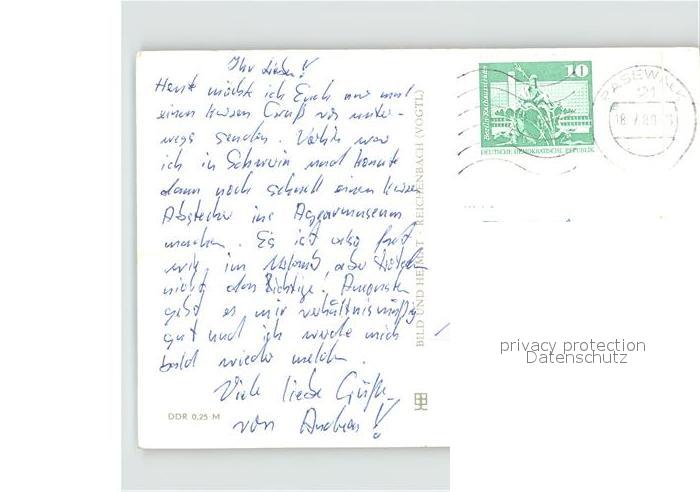 Ihr Lieben!
Heute möchte ich Euch nur mal
einen kurzen Gruß von unter-
wegs senden. Vorhin war
ich in Schwerin und konnte
dann noch schnell einen kurzen
Abstecher ins Agrarmuseum
machen. Es ist also fast
wie im Urlaub, aber trotzdem
nicht das Richtige! Ansonsten
geht es mir verhältnismäßig
gut und ich werde mich
bald wieder melden.
Viele liebe Grüße
von Andreas!
DDR 0,25 M
BILD UND HEIMAT REICHENBACH (VOGTL)
10
Berlin-Neptunbrunnen
DEUTSCHE DEMOKRATISCHE REPUBLIK
PASEWALK
21
privacy protection
Datenschutz